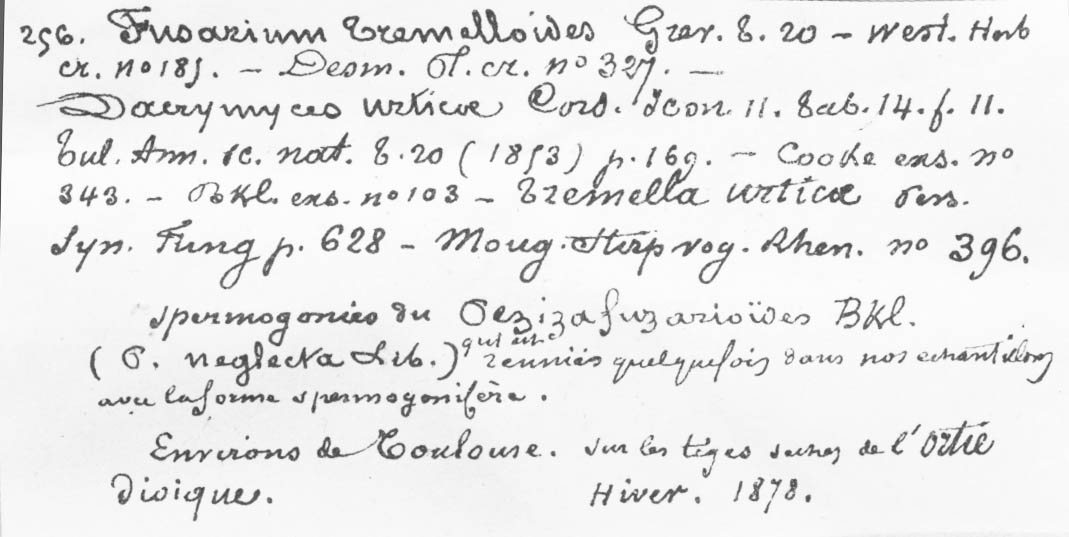 256. Fusarium tremelloides Grev. t. 20 – West. Herb
cr. no 185. – Desm. Pl. cr. no 327. —
Dacrymyces urticæ Cord. Icon. 11. tab. 14. f. 11.
Tul. Ann. sc. nat. t. 20 (1853) p. 169. – Cooke exs. no
343. – BKl. exs. no 103 – Tremella urticæ Pers.
Syn. Fung p. 628 – Moug. Stirp vog. Rhen. no 396.
spermogonies du Peziza fuzarioïdes BKl.
(P. neglecta Lib.) qui est reunies quelquefois dans nos echantillons
avec la forme spermogonifère.
Environs de Toulouse. sur les tiges seches de l'Ortie
dioique. Hiver. 1878.